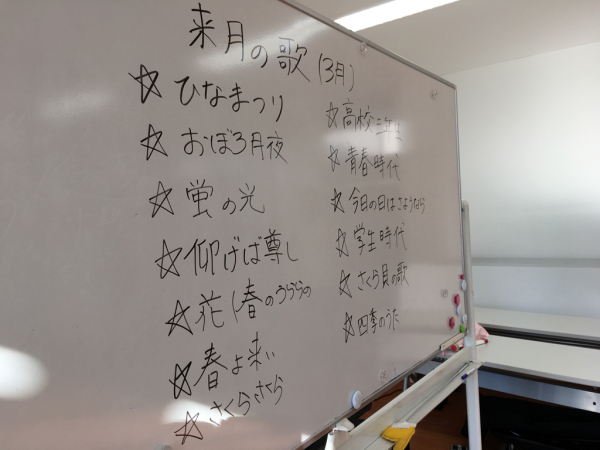 来月の歌(3月)
☆ひなまつり
☆おぼ3月夜
☆蛍の光
☆仰げば尊し
☆花(春のうららの
☆春よ来い
☆さくらさくら
☆高校三年生
☆青春時代
☆今日の日はさようなら
☆学生時代
☆さくら貝の歌
☆四季のうた